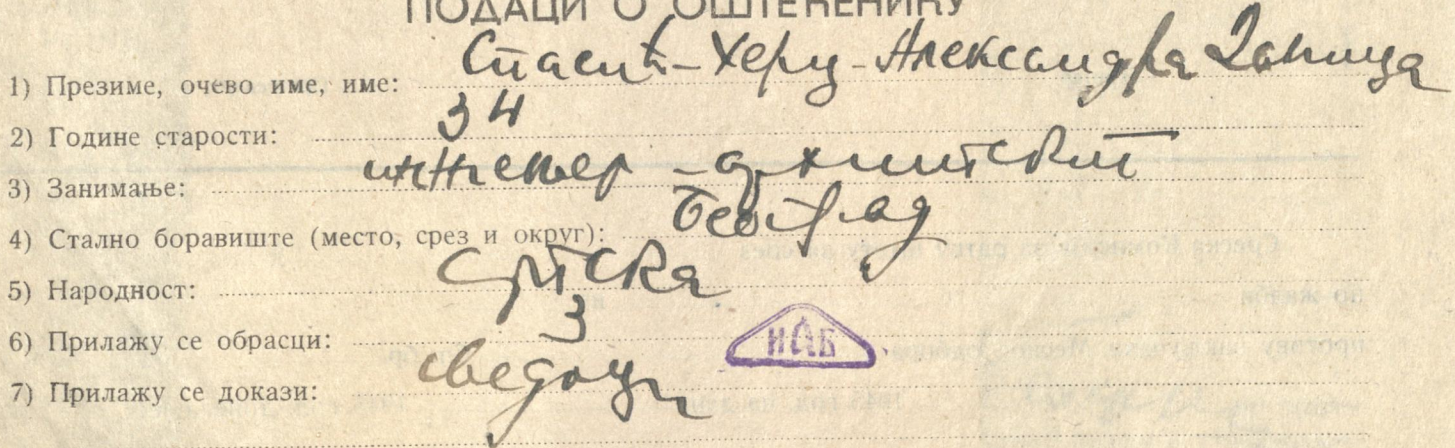 ПОДАЦИ О ОШТЕЋЕНИКУ
1) Презиме, очево име, име: Спасић-Херц-Александра Даница
2) Године старости: 34
3) Занимање: инжењер - архитект
4) Стално боравиште (место, срез и округ): Београд
5) Народност: Српска
6) Прилажу се обрасци: 3
ИАБ
7) Прилажу се докази: сведоци